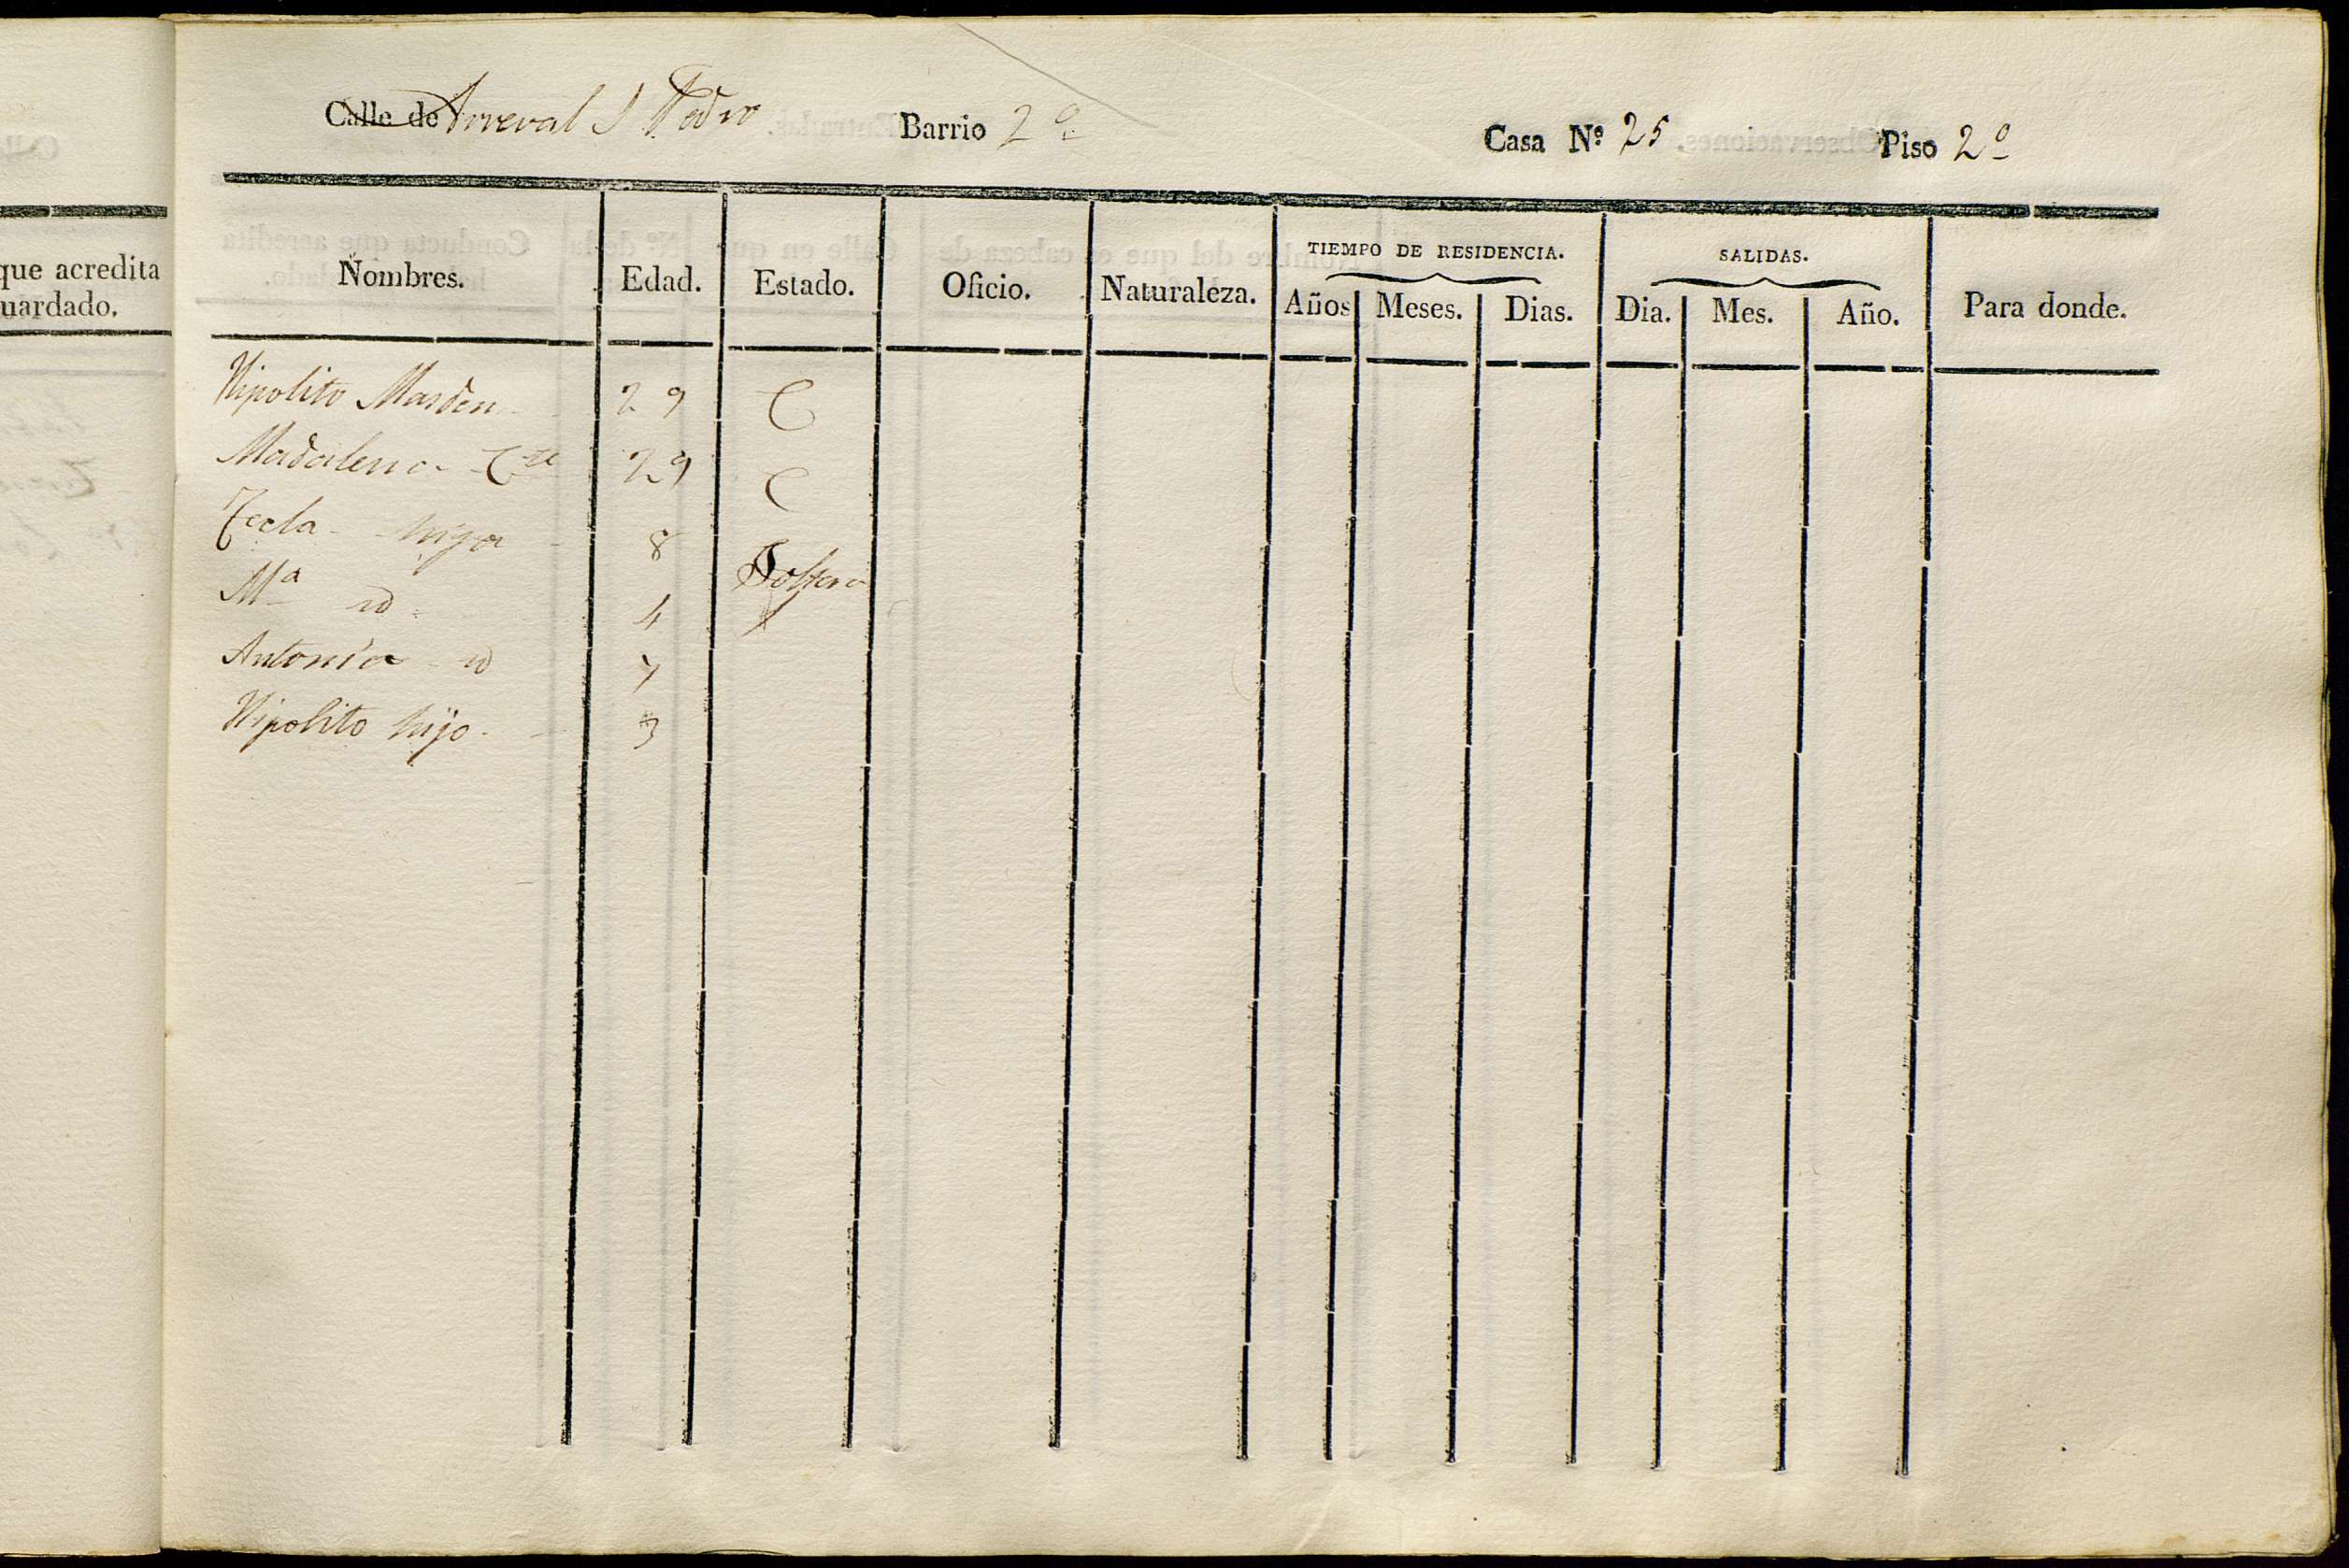 Calle de Arreval S. Pedro Barrio 2º Casa Nº 25 Piso 2º
que acredita
uardado.
Nombres. Edad. Estado. Oficio. Naturaleza. TIEMPO DE RESIDENCIA. SALIDAS. Para donde.
Años Meses. Dias. Dia. Mes. Año.
Hipolito 29 C
Madalena 29 C
Tecla hija 8 Soltera
Mª id 4
Antonia id
Hipolito hijo 3